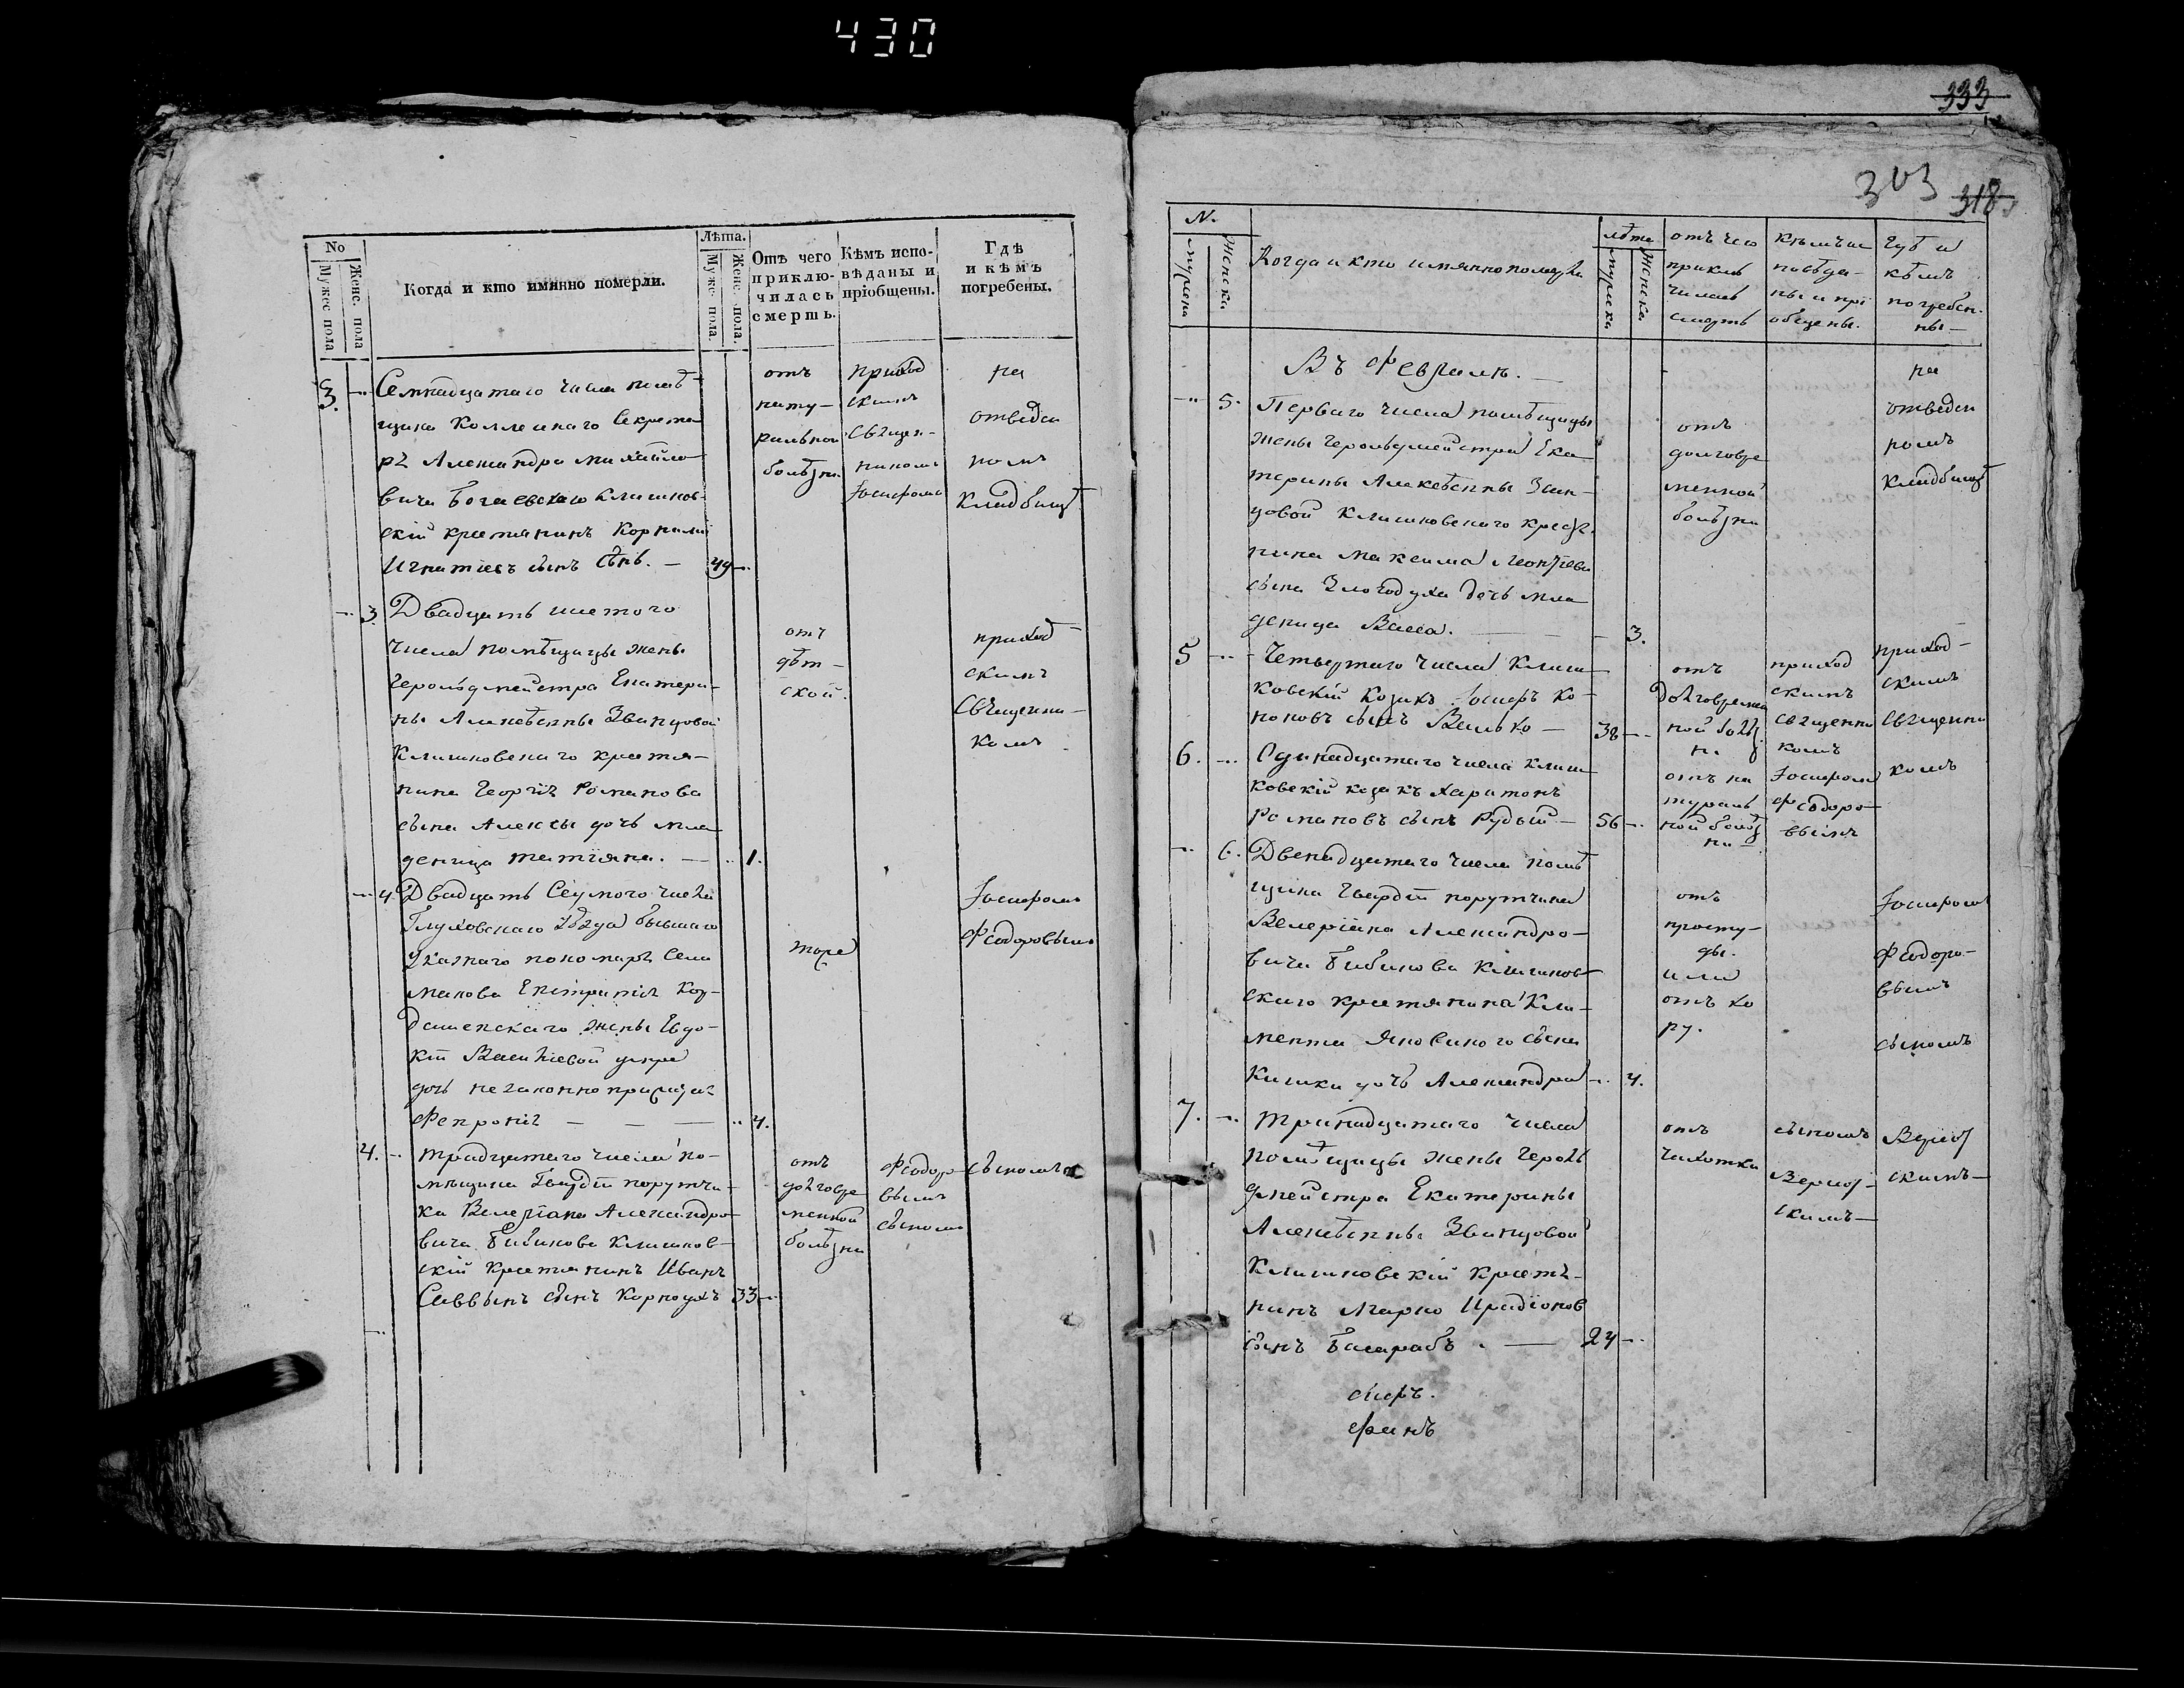 430
No
Мужес пола
Женс. пола
Когда и кто имянно померли.
Лѣта.
Мужс. пола.
Женс. пола.
Отъ чего
приклю-
чилась
смерть.
Кѣмъ испо-
вѣданы и
пріобщены.
Гдѣ
и кѣмъ
погребены.
3.
Семнадцатаго числа помѣ-
щика Коллежскаго Секрета
ря Александра Михайло
вича Богаевскаго Клишков-
скій крестянинъ Корнилій
Игнатіевъ сынъ 49
отъ
нату-
ральной
болѣзни
приход
скимъ
Священ-
никомъ
Іосифомъ
на
отведен
номъ
кладбищѣ
3. Двадцать шестого
числа помѣщицы жены
Герольдмейстра Екатери-
ны Алексѣевны Званцовой
Клишковскаго крестя-
нина Георгія Романова
сына Алексы дочь мла
деница Татіяна. 1.
отъ
дѣт-
ской.
приход-
скимъ
Священни-
комъ
4. Двадцать Седмого числа
Глуховскаго уѣзда бывшаго
указнаго пономаря Села
Макова
жены Евдо-
кіи Василіевой умре
дочь незаконноприжитая
Февронія 4.
Іосифомъ
Феодоровымъ
4. Тридцатаго числа по-
мѣщика Гвардіи порутчи-
ка Валеріана Александро
вича Бибикова Клишков-
скій крестянинъ Иванъ
Саввинъ сынъ Корноухъ 33
отъ
долговре
менной
болѣзни
Феодор
вымъ
сыномъ
сыномъ
333
303 318
N.
мужска
женска
Когда и кто имянно померли
лѣта
мужска
женска
отъ чего
приклю
чилась
смерть
кѣмъ ис
повѣда-
ны и прі
общены.
гдѣ и
кѣмъ
погребен.
ны
Въ Февралѣ.
5. Перваго числа помѣщицы
жены Герольдмейстра Ека
терины Алексѣевны Зван-
цовой Клишковскаго крестя.
нина Максима Леонтіева
сына Злогодуха дочь мла
деница Васса. 3.
отъ
долговре
менной
болѣзни
на
отведен
номъ
кладбищѣ
5 Четвертаго числа Клиш
ковскій Козакъ Іосифъ Ко-
ноновъ сынъ Велько 38
отъ
долговремен
ной болѣз
ни
приход
скимъ
священни
комъ
приход-
скимъ
священни
комъ
6. Одинадцатаго числа Клиш
ковскій козакъ Харитонъ
Романовъ сынъ Рудый 56
отъ на
тураль
ной болѣз
ни
Іосифомъ
Феодоро
вымъ
6. Двенадцатаго числа помѣ
щика Гвардіи порутчика
Валеріана Александро-
вича Бибикова Клишков-
скаго крестянина Кли-
мента сына
Кишки дочь Александра 4.
отъ
просту-
ды.
или
отъ ко
ру.
Іосифомъ
Феодоро-
вымъ
сыномъ
7. Тринадцатаго числа
помѣщицы жены Героль
дмейстра Екатерины
Алексѣевны Званцовой
Клишковскій крестя-
нинъ Марко Иродіонов
сынъ Басарабъ 24
отъ
чахотки
сыномъ
скимъ
скимъ